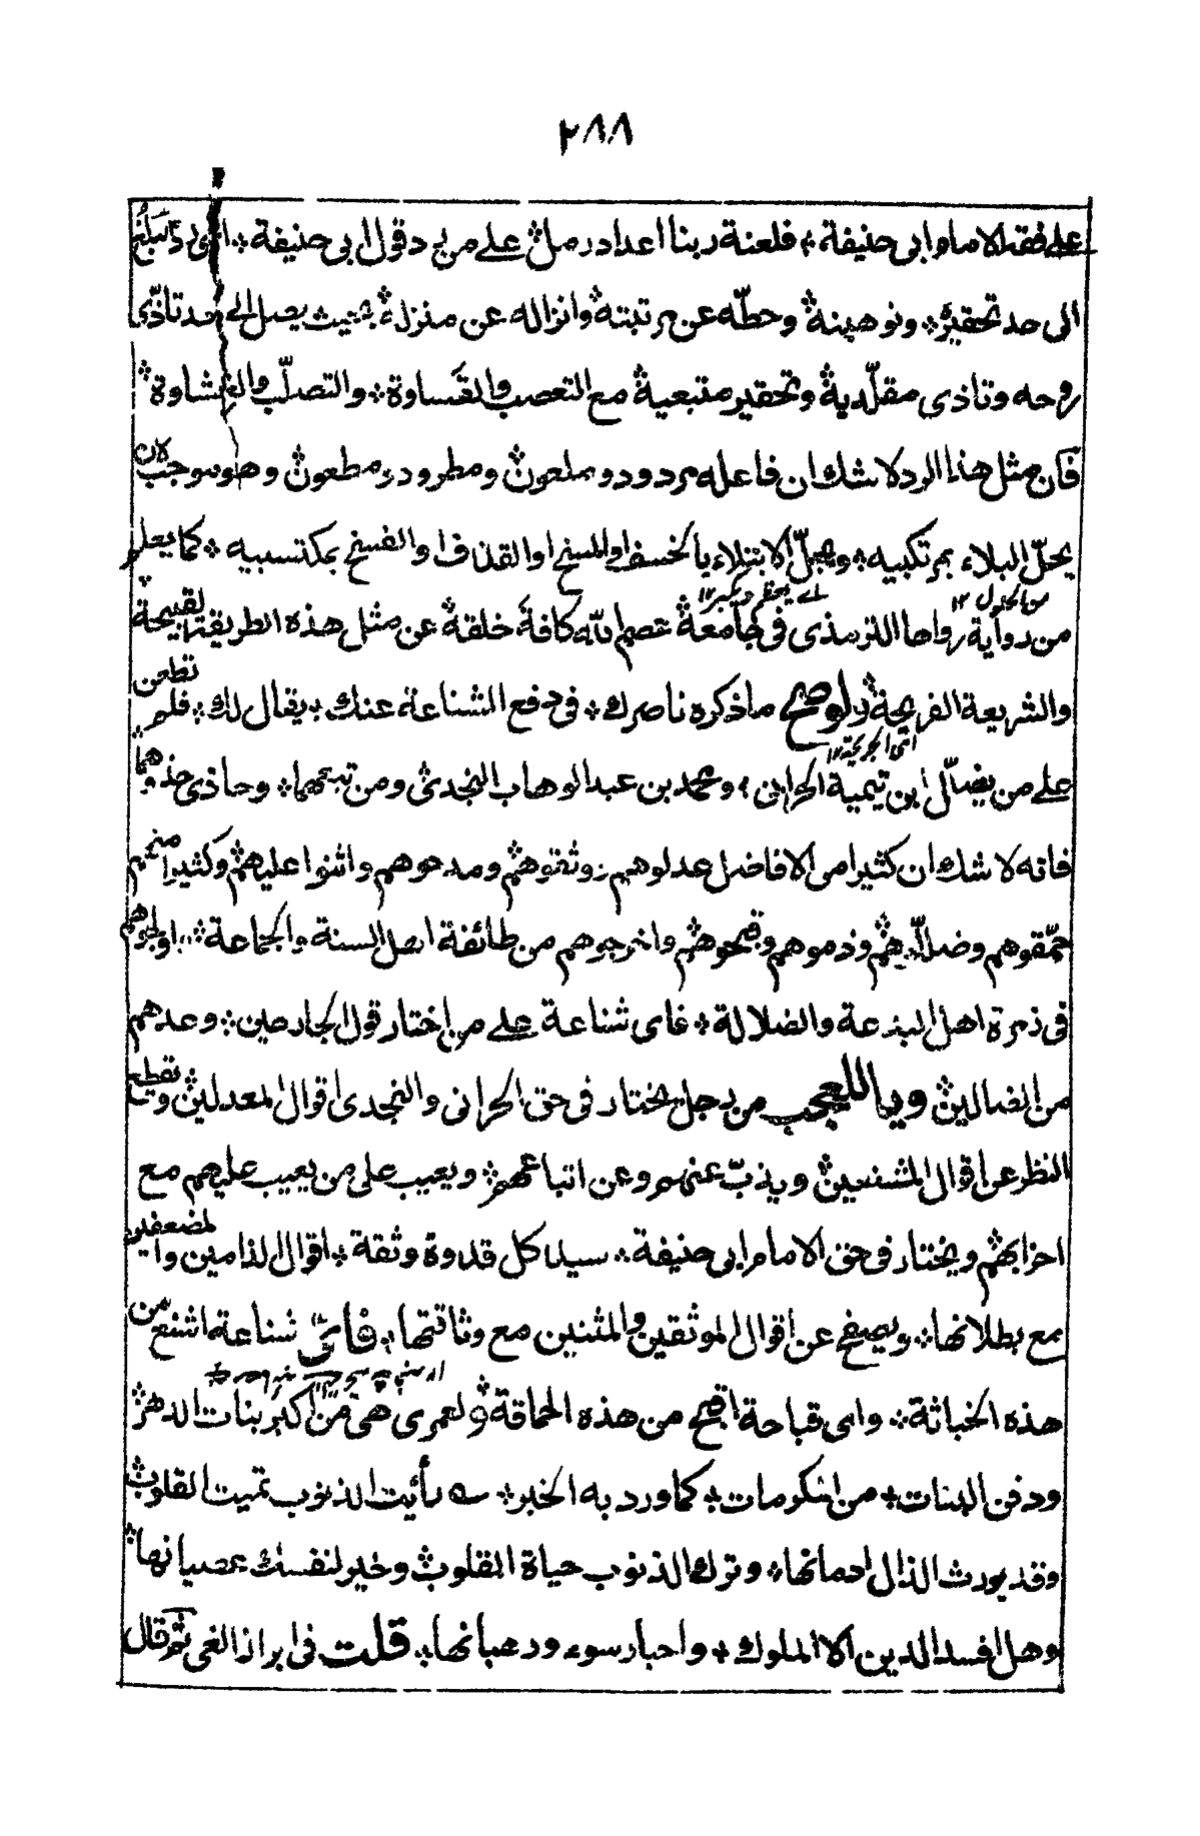 ٢٨٨
على فقه الامام ابى حنيفة ۞ فلعنة ربنا اعداد رمل ۞ على من رد قول ابى حنيفة ۞ اى رد يبلغ
الى حد تحقيره ۞ وتوهينه ۞ وحطّه عن مرتبته ۞ وانزاله عن منزله ۞ بحيث يصل الى حد تاذّى
روحه وتاذى مقلّديه ۞ وتحقير متبعيه ۞ مع التعصب والقساوة ۞ والتصلّب والغشاوة ۞
فان مثل هذا الرد لا شك ان فاعله مردود وملعون ۞ ومطرود ومطعون ۞ وهو موجب لان
يحلّ البلاء بمرتكبيه ۞ ومحلّ الابتلاء بالخسف او المسخ او القذف او الفسخ بمكتسبيه ۞ كما يعلم
من الحلول ١٢
من رواية رواها الترمذى فى جامعه ۞ عصم الله كافة خلقه ۞ عن مثل هذه الطريقة القبيحة
والشريعة الفريحة ۞ ولو صح ما ذكره ناصرك ۞ فى دفع الشناعة عنك ۞ يقال لك ۞ فلم تطعن
اى الجريحة ١٢
على من يضلّل ابن تيمية الحرانى ۞ ومحمد بن عبد الوهاب النجدى ۞ ومن تبعهما ۞ وحاذى حذوهما
فانه لا شك ان كثيرا من الافاضل عدلوهم ووثقوهم ۞ ومدحوهم واثنوا عليهم ۞ وكثيرا منهم
حمّقوهم وضلّلوهم ۞ وذموهم وقبحوهم ۞ واخرجوهم من طائفة اهل السنة والجماعة ۞ واولجوهم
فى زمرة اهل البدعة والضلالة ۞ فاى شناعة على من اختار قول الجارحين ۞ وعدهم
من الضالين ۞ ويا للعجب من رجل يختار فى حق الحرانى والنجدى اقوال المعدلين ۞ ويقطع
النظر عن اقوال المشنعين ۞ ويذبّ عنهم وعن اتباعهم ۞ ويعيب على من يعيب عليهم مع
احزابهم ۞ ويختار فى حق الامام ابى حنيفة ۞ سيد كل قدوة وثقة ۞ اقوال الذامين والمضعفين
مع بطلانها ۞ ويصفح عن اقوال الموثقين والمثنين مع وثاقتها ۞ فاى ۞ شناعة اشنع من
هذه الخباثة ۞ واى قباحة اقبح من هذه الحماقة ۞ ولعمرى هى من اكبر بنات الدهر ۞
ودفن البنات ۞ من المكرمات ۞ كما ورد به الخبر ۞ رأيت الذنوب تميت القلوب ۞
وقد يورث الذل ادمانها ۞ وترك الذنوب حياة القلوب ۞ وخير لنفسك عصيانها ۞
وهل افسد الدين الا الملوك ۞ واحبار سوء ورهبانها ۞ قلت فى ابراز الغى ثم قال